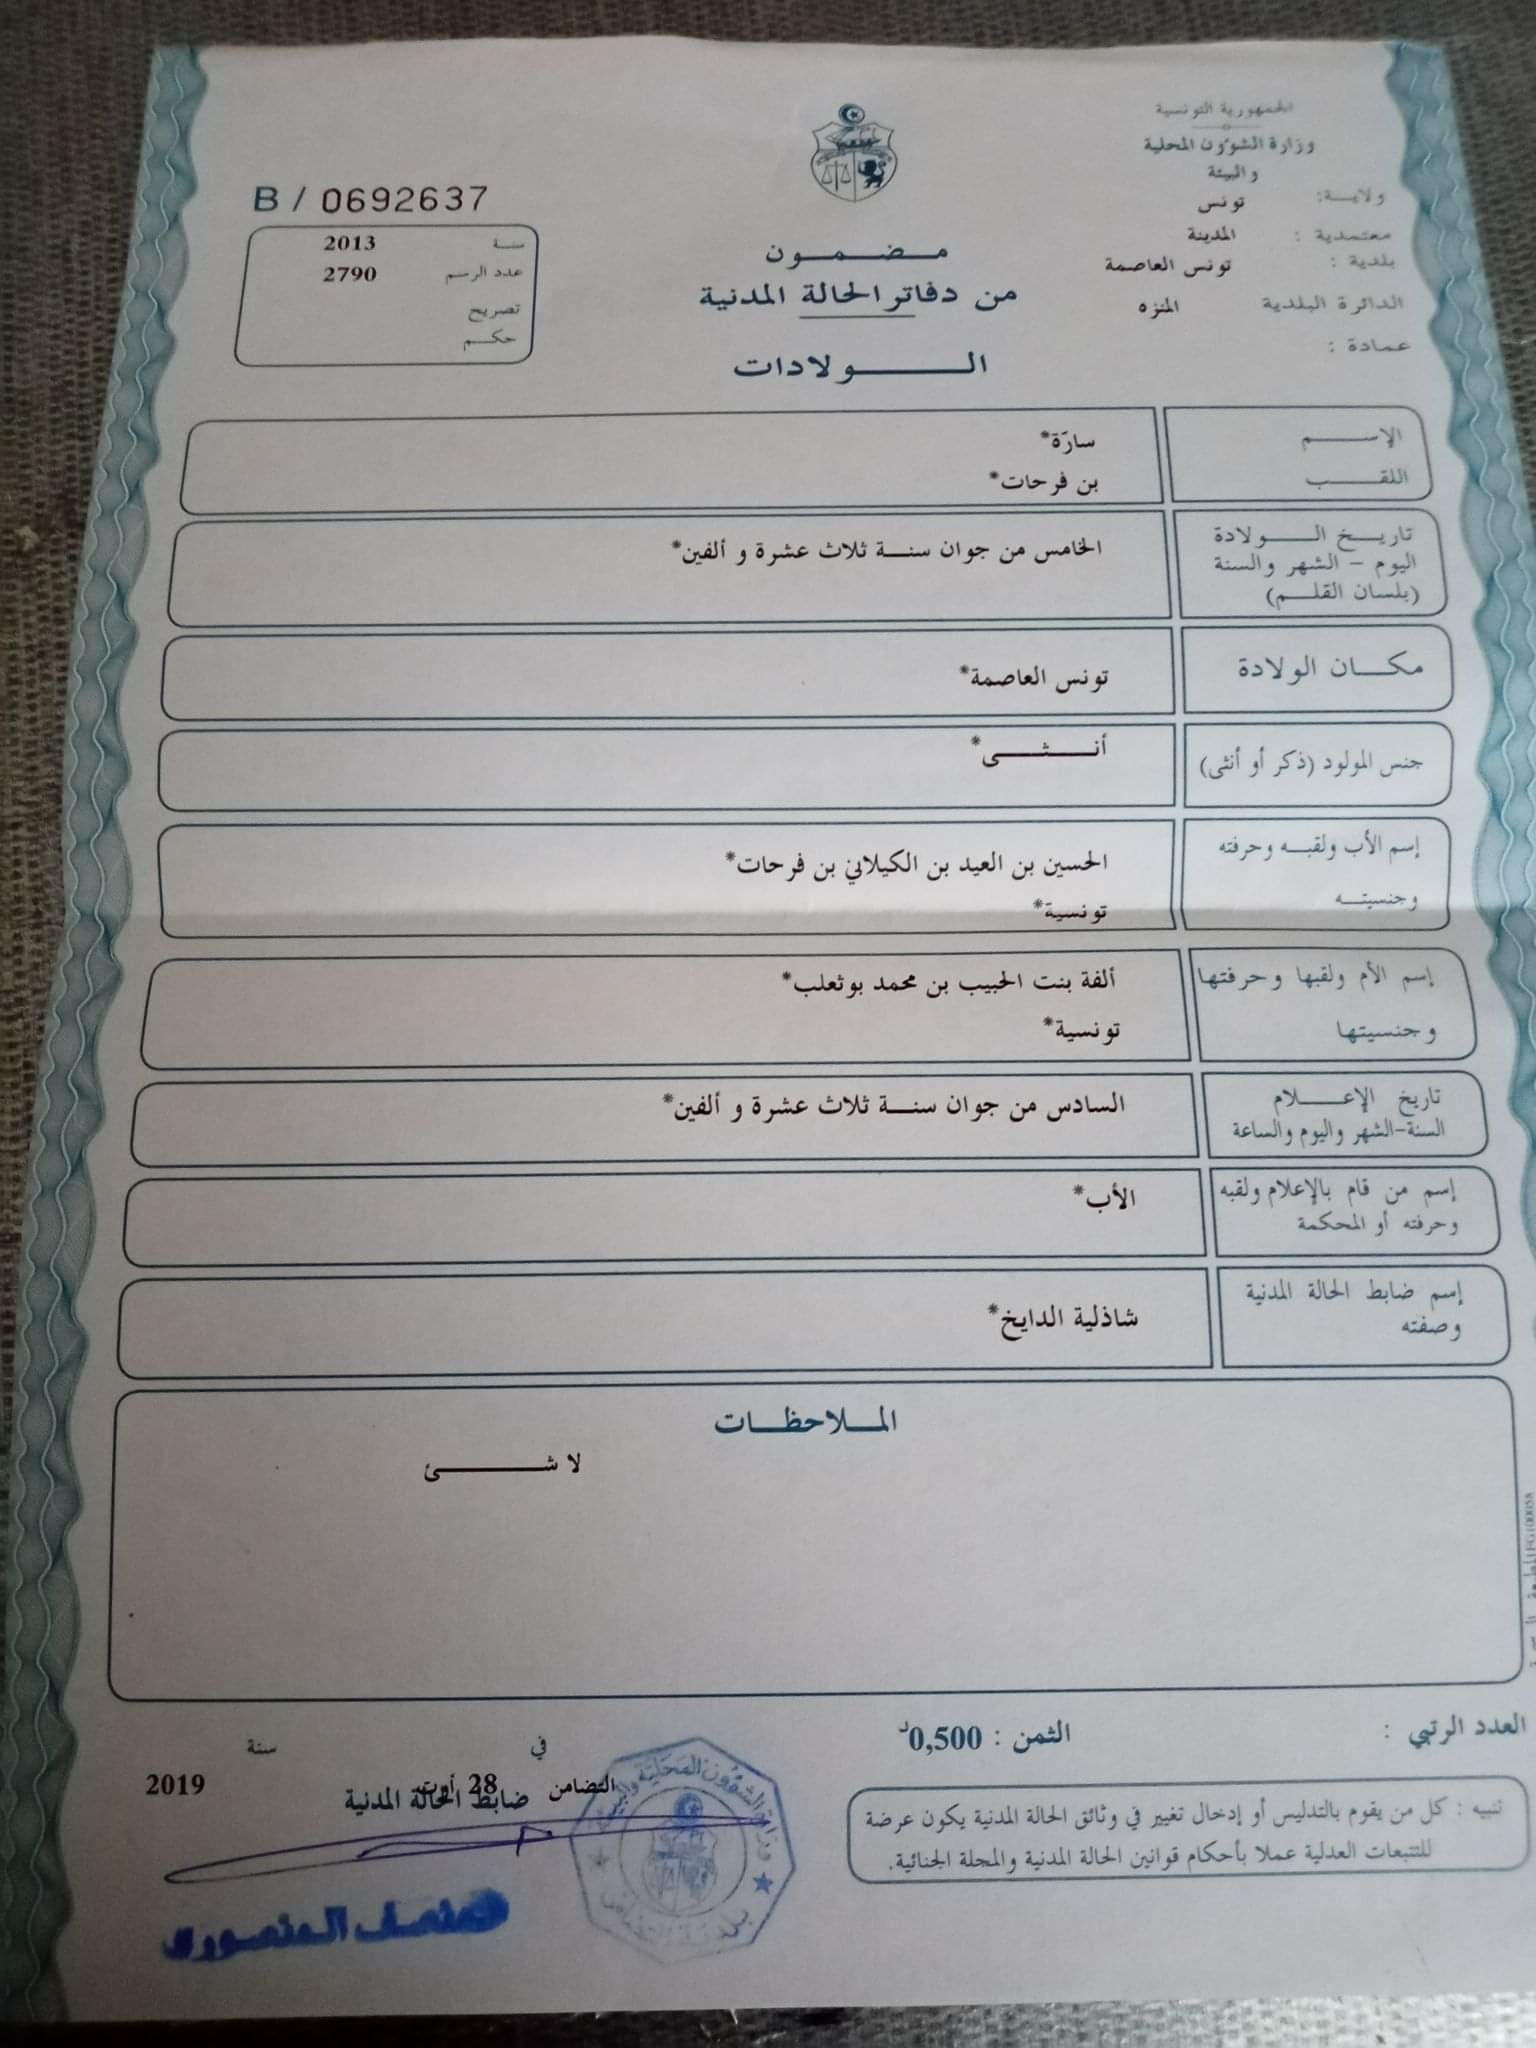 الجمهورية التونسية
وزارة الشؤون المحلية
والبيئة
ولايـة: تونس
معتمدية : المدينة
بلدية : تونس العاصمة
الدائرة البلدية المنزه
عمادة :
مـضـمـون
من دفاتر الحالة المدنية
الــولادات
B / 0692637
سنة 2013
عدد الرسم 2790
تصريح
حكـم
الإســم سارّة*
اللقــب بن فرحات*
تاريـخ الــولادة
اليوم - الشهر والسنة
(بلسان القلـم)
الخامس من جوان سنـة ثلاث عشرة و ألفين*
مكـان الولادة تونس العاصمة*
جنس المولود (ذكر أو أنثى) أنــثــى*
إسم الأب ولقبـه وحرفته
وجنسيتـه
الحسين بن العيد بن الكيلاني بن فرحات*
تونسية*
إسم الأم ولقبها وحرفتها
وجنسيتها
ألفة بنت الحبيب بن محمد بوثعلب*
تونسية*
تاريخ الإعـلام
السنة-الشهر واليوم والساعة
السادس من جوان سنـة ثلاث عشرة و ألفين*
إسم من قام بالإعلام ولقبه
وحرفته أو المحكمة
الأب*
إسم ضابط الحالة المدنية
وصفته
شاذلية الدايخ*
المـلاحظـات
لا شــئ
العدد الرتبي :
الثمن : 0,500د
في
سنة
التضامن 28 أوت 2019
ضابط الحالة المدنية
تنبيه : كل من يقوم بالتدليس أو إدخال تغيير في وثائق الحالة المدنية يكون عرضة
للتتبعات العدلية عملا بأحكام قوانين الحالة المدنية والمجلة الجنائية.
وزارة الشؤون المحلية والبيئة
منصف المنصوري